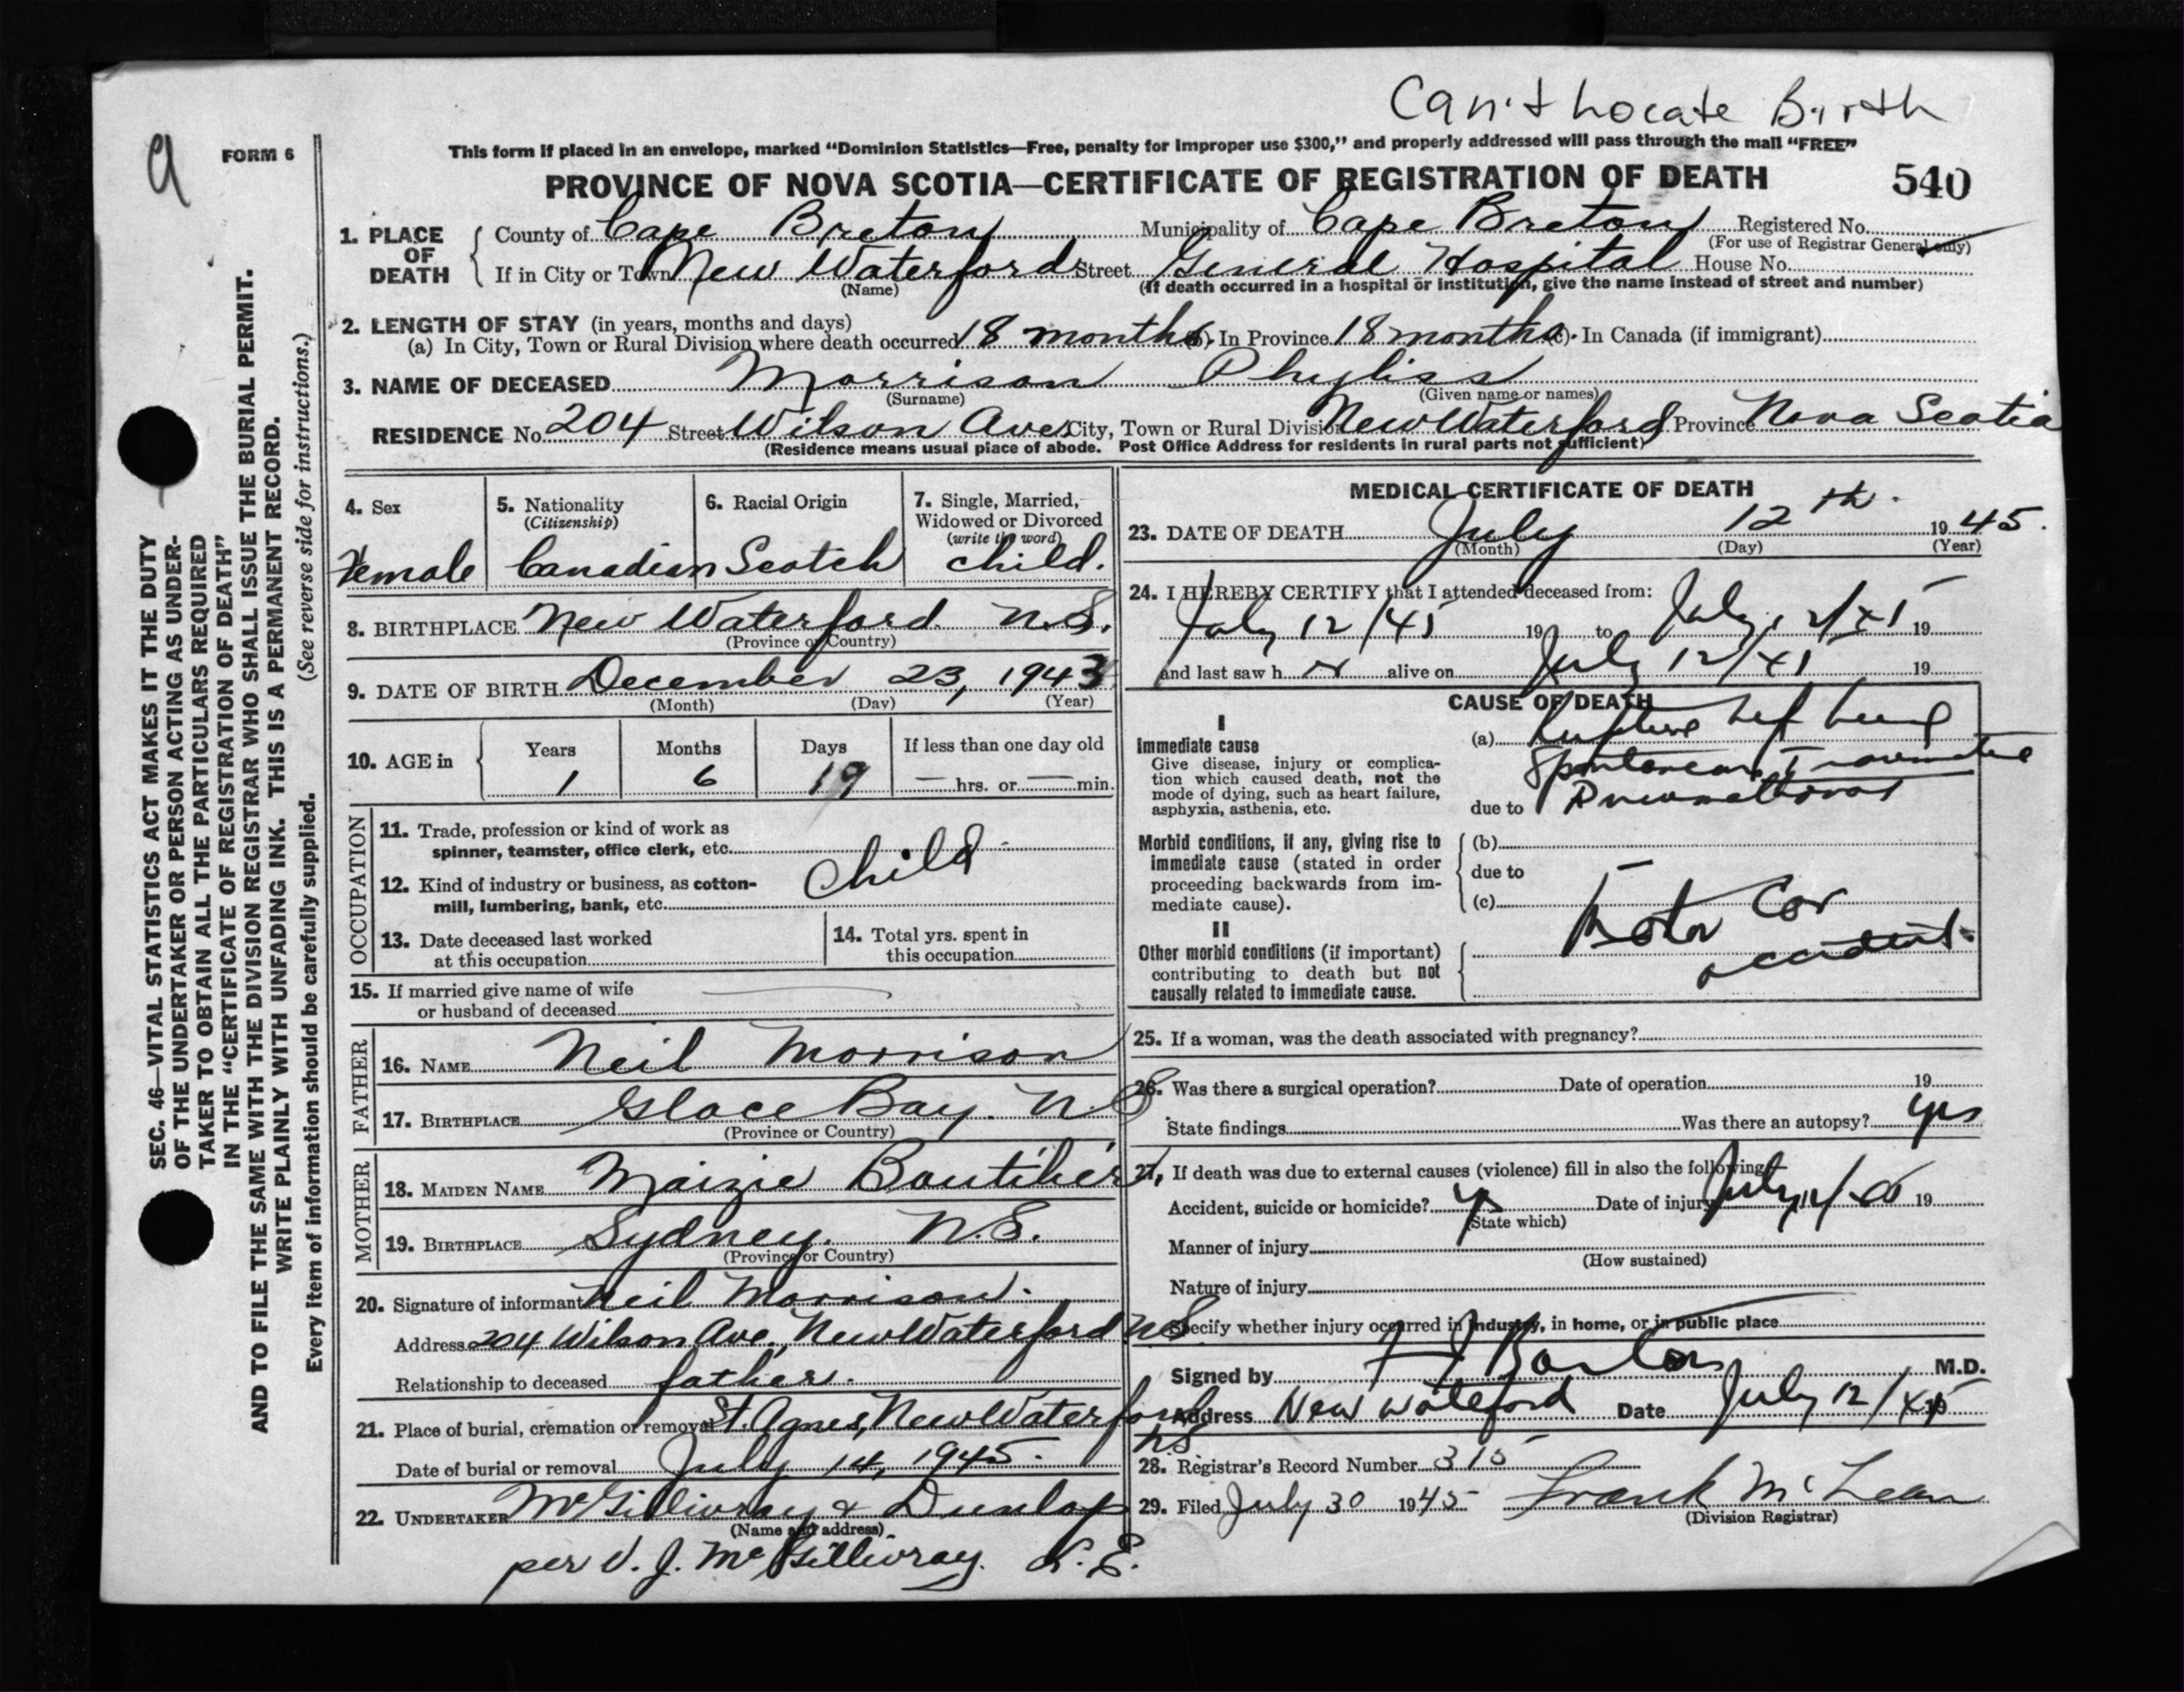 Can't Locate Birth
9
FORM 6
This form if placed in an envelope, marked "Dominion Statistics—Free, penalty for improper use $300," and properly addressed will pass through the mail "FREE"
PROVINCE OF NOVA SCOTIA—CERTIFICATE OF REGISTRATION OF DEATH 540
1. PLACE OF DEATH
County of Cape Breton Municipality of Cape Breton Registered No.
(For use of Registrar General only)
If in City or Town New Waterford Street General Hospital House No.
(Name) (If death occurred in a hospital or institution, give the name instead of street and number)
2. LENGTH OF STAY (in years, months and days)
(a) In City, Town or Rural Division where death occurred 18 months (b). In Province 18 months (c). In Canada (if immigrant)
3. NAME OF DECEASED Morrison Phyliss
(Surname) (Given name or names)
RESIDENCE No. 204 Street Wilson Ave City, Town or Rural Division New Waterford Province Nova Scotia
(Residence means usual place of abode. Post Office Address for residents in rural parts not sufficient)
4. Sex
Female
5. Nationality
(Citizenship)
Canadian
6. Racial Origin
Scotch
7. Single, Married,
Widowed or Divorced
(write the word)
child.
8. BIRTHPLACE New Waterford N.S.
(Province or Country)
9. DATE OF BIRTH December 23, 1943
(Month) (Day) (Year)
10. AGE in
Years Months Days If less than one day old
1 6 19 — hrs. or — min.
OCCUPATION
11. Trade, profession or kind of work as
spinner, teamster, office clerk, etc.
Child
12. Kind of industry or business, as cotton-
mill, lumbering, bank, etc.
13. Date deceased last worked
at this occupation
14. Total yrs. spent in
this occupation
15. If married give name of wife
or husband of deceased
FATHER
16. NAME Neil Morrison
17. BIRTHPLACE Glace Bay. N.S
(Province or Country)
MOTHER
18. MAIDEN NAME Maizie Boutilier
19. BIRTHPLACE Sydney. N.S.
(Province or Country)
20. Signature of informant Neil Morrison.
Address 204 Wilson Ave, New Waterford NS
Relationship to deceased father.
21. Place of burial, cremation or removal St. Agnes, New Waterford
NS
Date of burial or removal July 14, 1945.
22. UNDERTAKER McGillivray & Dunlop
(Name and address)
per V. J. McGillivray. L.E.
MEDICAL CERTIFICATE OF DEATH
23. DATE OF DEATH July 12th. 1945.
(Month) (Day) (Year)
24. I HEREBY CERTIFY that I attended deceased from:
July 12/45 19 to July 12/45 19
and last saw h er alive on July 12/45 19
CAUSE OF DEATH
I
Immediate cause
Give disease, injury or complica-
tion which caused death, not the
mode of dying, such as heart failure,
asphyxia, asthenia, etc.
(a) Rupture Left Lung
Traumatic
due to Pneumothorax
Morbid conditions, if any, giving rise to
immediate cause (stated in order
proceeding backwards from im-
mediate cause).
(b)
due to
(c)
II
Other morbid conditions (if important)
contributing to death but not
causally related to immediate cause.
Motor Car
accident.
25. If a woman, was the death associated with pregnancy?
26. Was there a surgical operation? Date of operation 19
State findings Was there an autopsy? yes
27. If death was due to external causes (violence) fill in also the following:
Accident, suicide or homicide? Date of injury July 12/45 19
(State which)
Manner of injury
(How sustained)
Nature of injury
Specify whether injury occurred in industry, in home, or in public place
Signed by M.D.
Address New Waterford Date July 12/45 19
28. Registrar's Record Number 315
29. Filed July 30 1945 Frank McLean
(Division Registrar)
SEC. 46—VITAL STATISTICS ACT MAKES IT THE DUTY
OF THE UNDERTAKER OR PERSON ACTING AS UNDER-
TAKER TO OBTAIN ALL THE PARTICULARS REQUIRED
IN THE "CERTIFICATE OF REGISTRATION OF DEATH"
AND TO FILE THE SAME WITH THE DIVISION REGISTRAR WHO SHALL ISSUE THE BURIAL PERMIT.
WRITE PLAINLY WITH UNFADING INK. THIS IS A PERMANENT RECORD.
Every item of information should be carefully supplied. (See reverse side for instructions.)